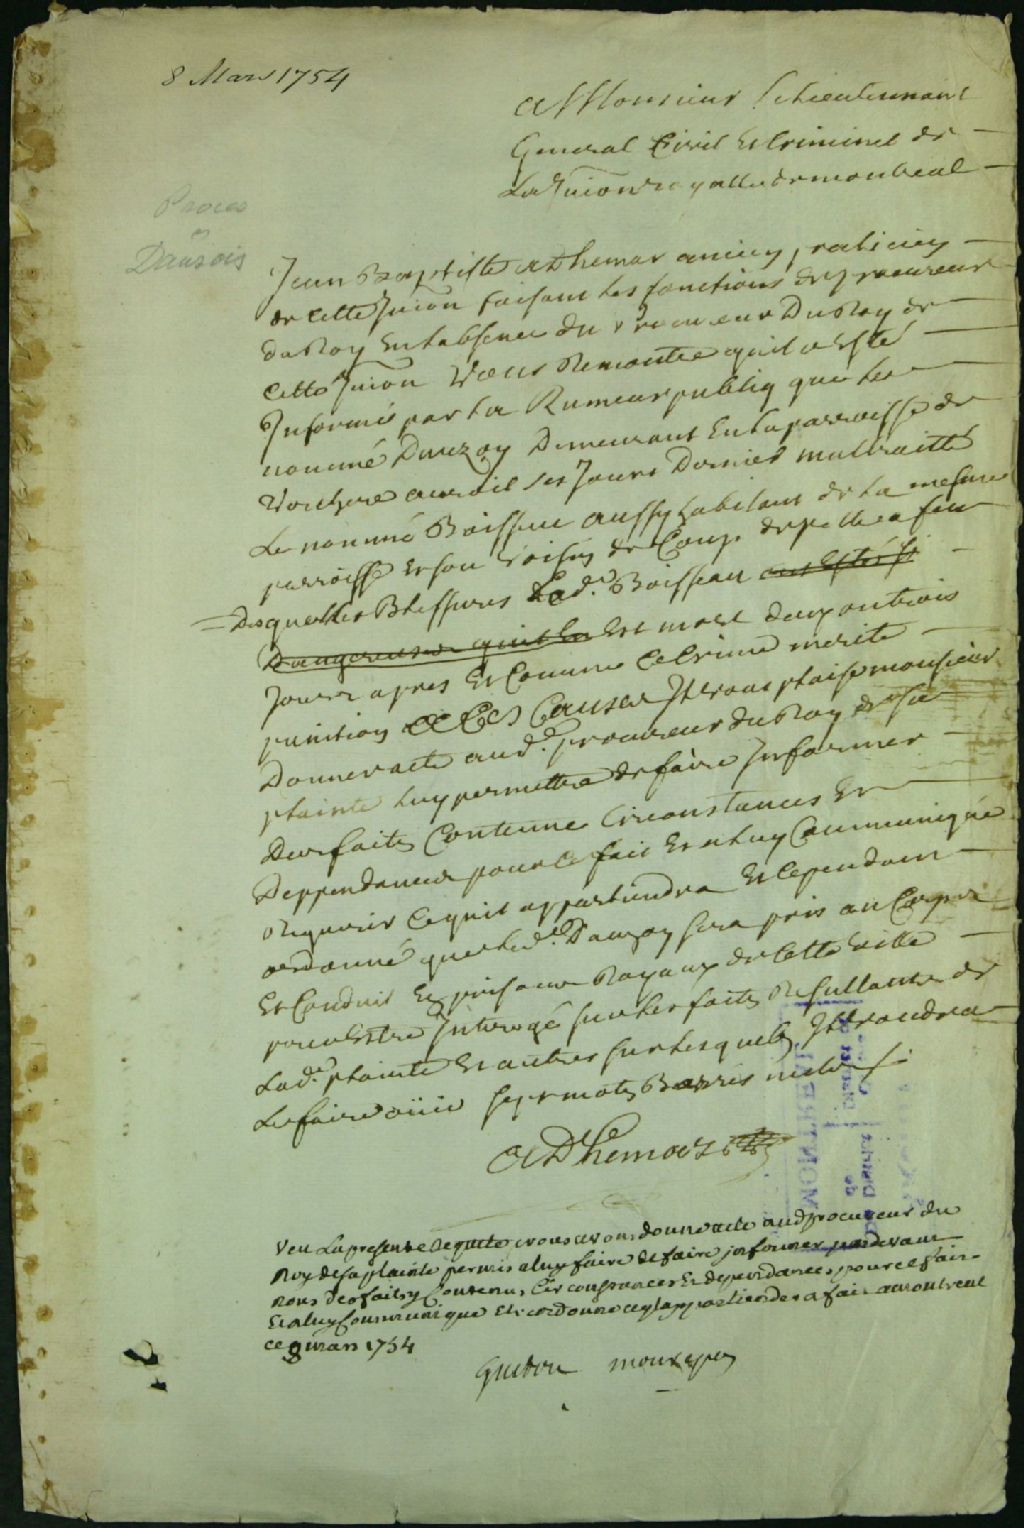 8 Mars 1754
A Monsieur Le Lieutenant
General Civil Et Criminel de
La Juion royalle de montreal
Proces
Dauzois
Jean Baptiste Adhemar ancien praticien
de cette Juion faisant les fonctions de procureur
du Roy En labsence du procureur Du Roy de
cette Juion Vous Remontre quil a Esté
Informé par la Rumeur publiq que le
nommé Dauzoy Demeurant En la parroisse de
Verchere auroit ces Jours Derniers maltraitté
Le nommé Boisseau aussy habitant de la mesme
parroisse Et son Voisin de Coups de pelle a feu
Desquelles Blessures Led.t Boisseau aur Esté si
Dangereuses quil En Est mort deux ou trois
Jours apres Et Comme Ce Crime merite
punition A Ces Causes Il vous plaise monsieur
Donner acte aud.t procureur du Roy de sa
plainte Luy permettre de faire Informer
Des faits Contenus Circonstances Et
Deppendances pour Ce fait Et a luy Communiqué
Requerir Ce quil appartiendra Et Cependant
ordonné que led.t Dauzoy sera pris au Corps
Et Conduit Es prisons Royaux de Cette Ville
pour Estre Interogé sur les faits Resultants de
Lad.te plainte Et autres sur lesquels Il Voudra
Le faire oüir sept mots Barrés nuls
Adhemar
MONTREAL
District
Veu La presente Requete, nous avons donne acte aud procureur du
Roy de sa plainte permis a luy faire de faire jnformer pardevant
nous des faits y Contenus, Circonstances Et dependances, pour ce fait
Et a luy Communiqué Etre ordonné ce qil appartiendra fait a montreal
ce 8 mars 1754
Guiton monrepos